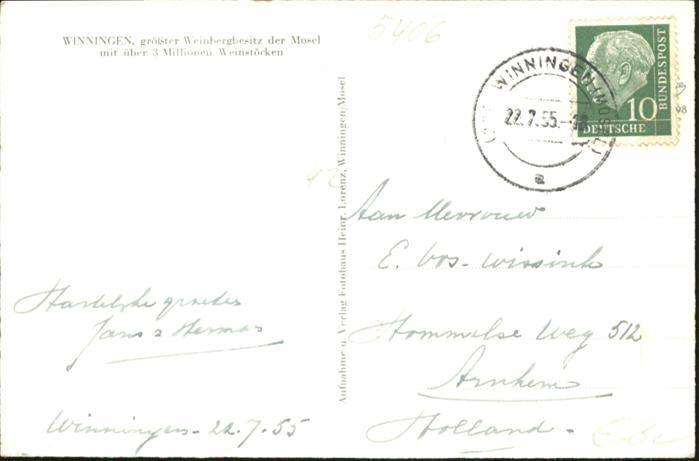 WINNINGEN, größter Weinbergbesitz der Mosel
mit über 3 Millionen Weinstöcken
5406
WINNINGEN (MOSEL)
22.7.55.-
a
10
DEUTSCHE
BUNDESPOST
98
42
Aufnahme u. Verlag Fotohaus Heinr. Lorenz, Winningen/Mosel
Hartelijke groetes
Jans & Hermas
Winningen - 22.7.55
Aan Mevrouw
E. Bos-Wissink
Hommelse Weg 512
Arnhem
Holland -